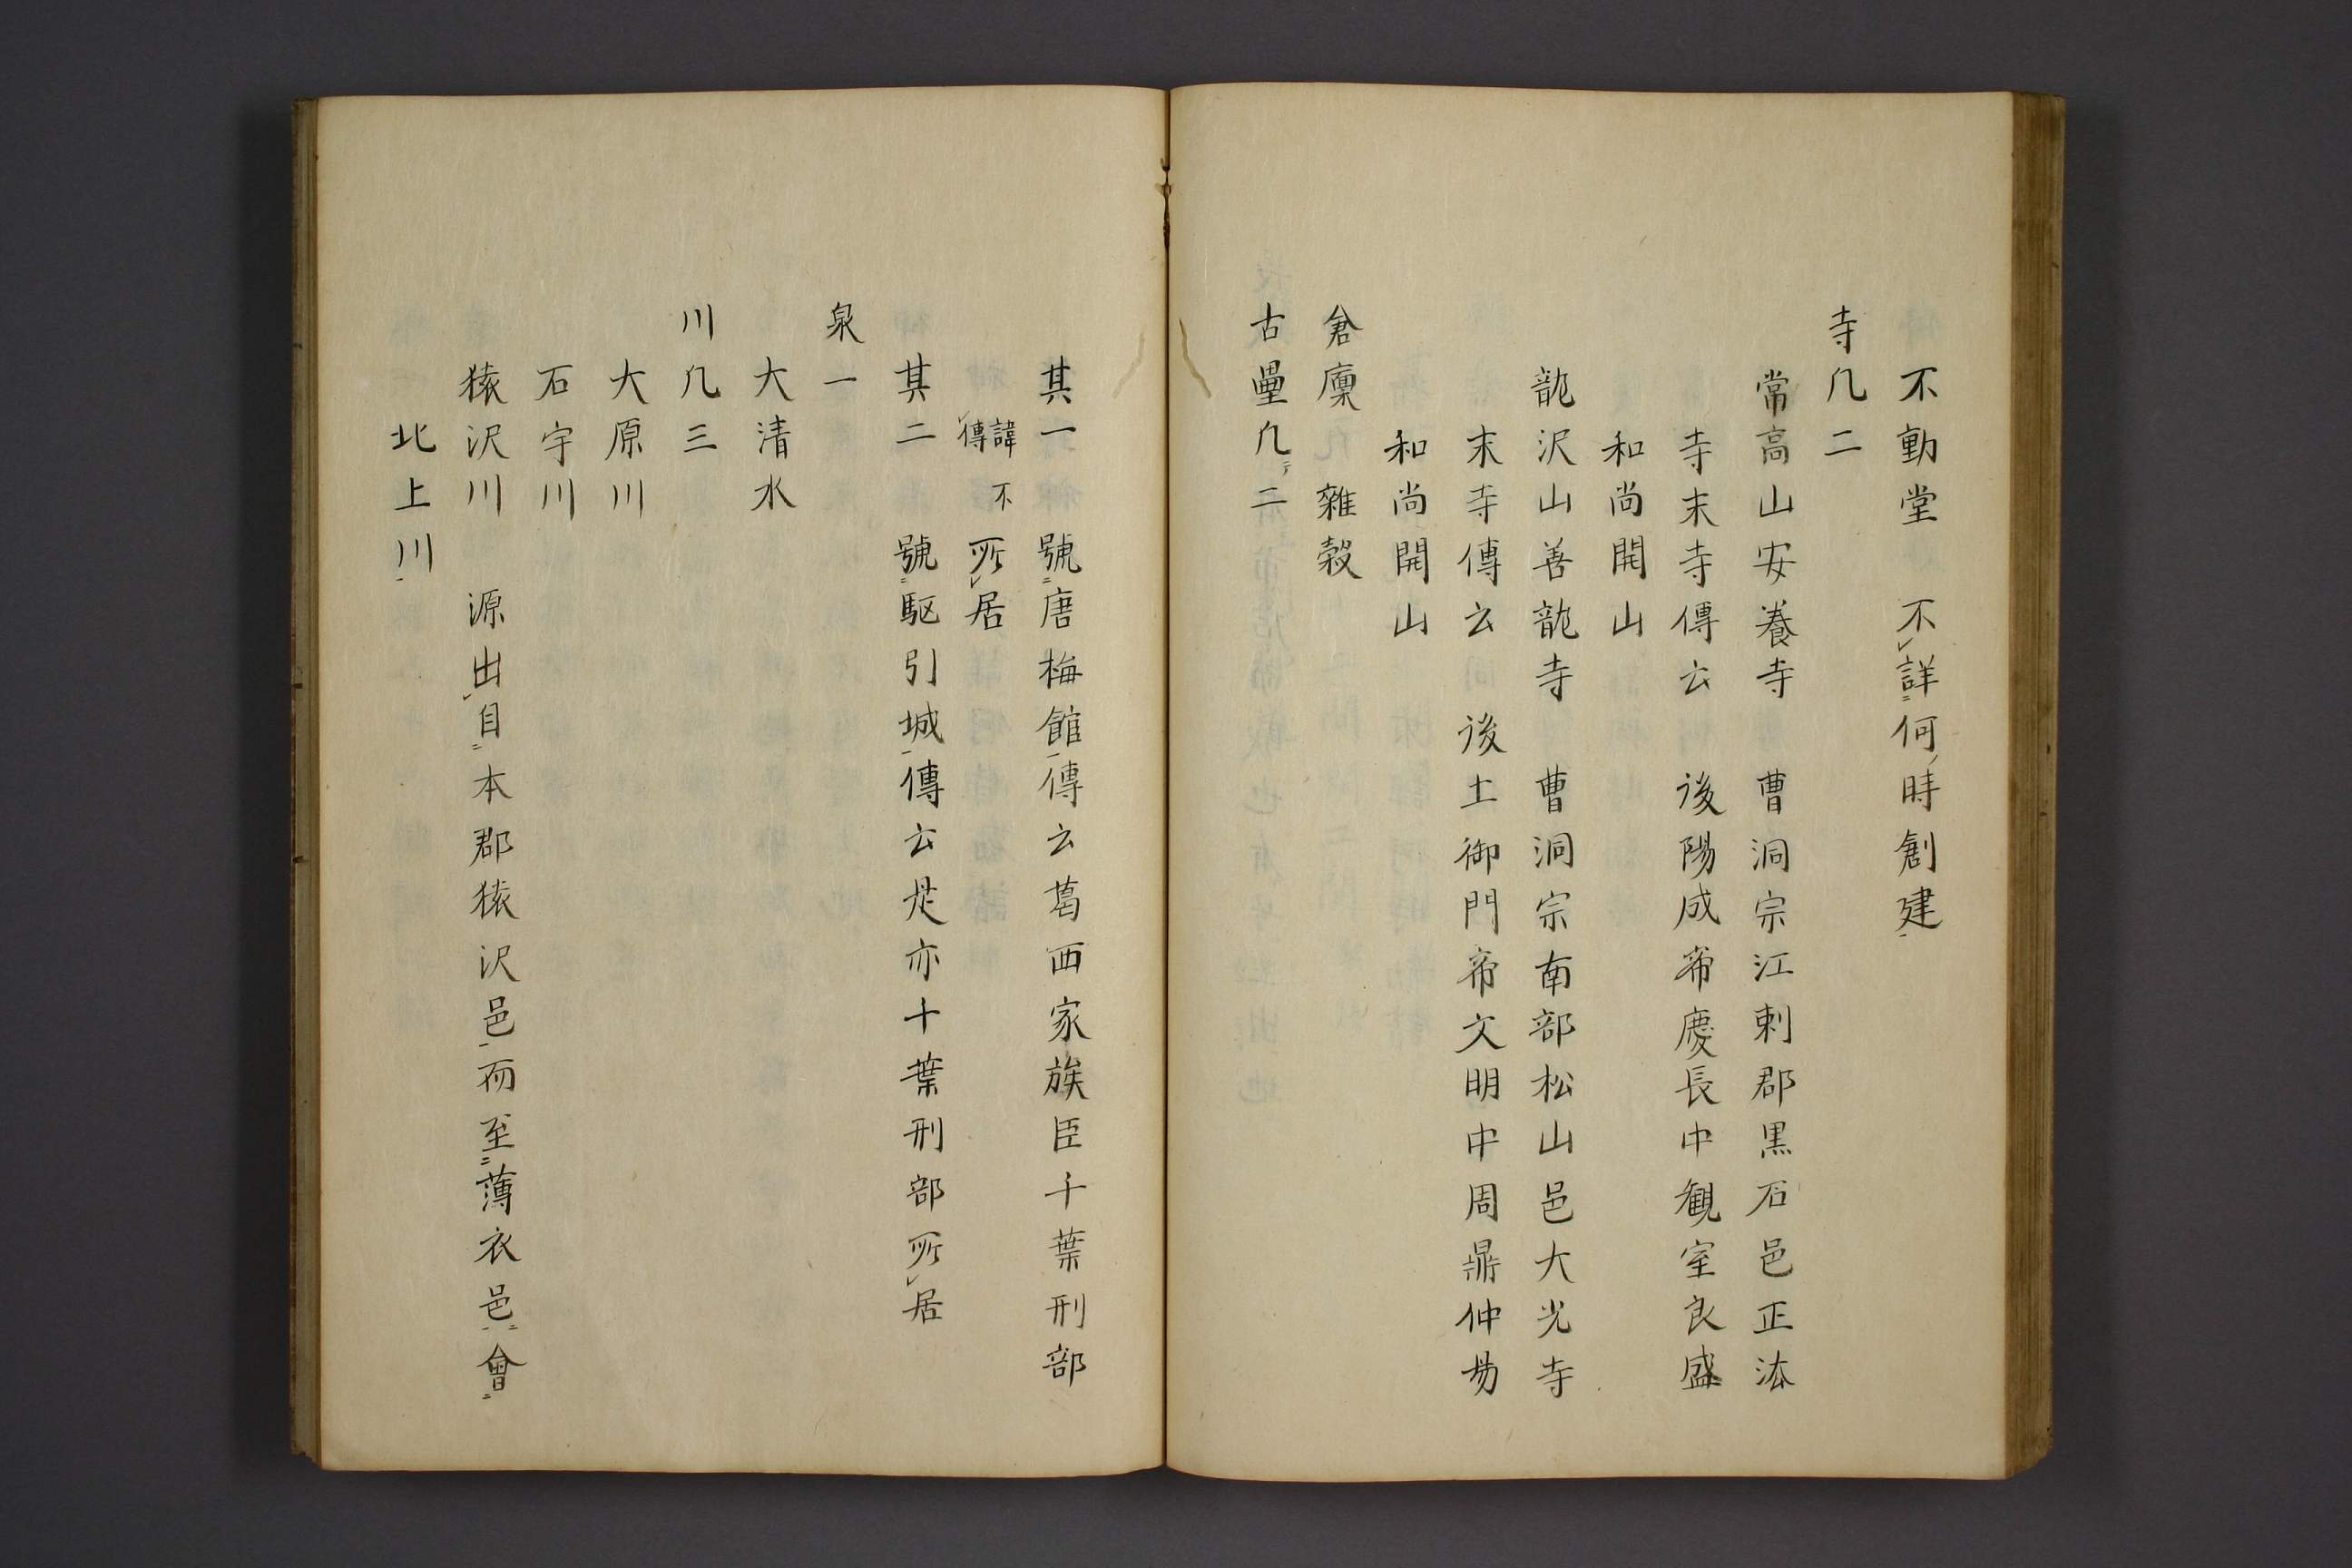 不動堂　不詳何時創建
寺凡二
常高山安養寺　曹洞宗江刺郡黒石邑正法
寺末寺傳云　後陽成帝慶長中観室良盛
和尚開山
龍沢山善龍寺　曹洞宗南部松山邑大光寺
末寺傳云　後土御門帝文明中周鼎仲易
和尚開山
倉廩　雜穀
古壘凡二
其一　號唐梅館傳云葛西家族臣千葉刑部
諱不
傳
所居
其二　號駈引城傳云是亦千葉刑部所居
泉一
大清水
川凡三
大原川
石宇川
猿沢川　源出自本郡猿沢邑而至薄衣邑會
北上川